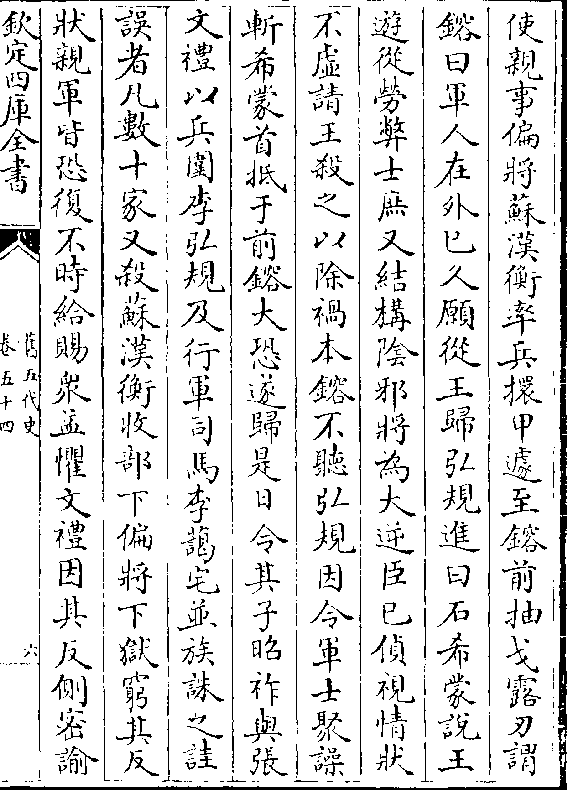 使親事偏將蘇漢衡率兵擐甲遽至鎔前抽戈露刃謂
鎔曰軍人在外已久願從王歸弘規進曰石希蒙說王
遊從勞弊士庶又結構陰邪將為大逆臣已偵視情狀
不虛請王殺之以除禍本鎔不聽弘規因令軍士聚譟
斬希蒙首抵于前鎔大恐遂歸是日令其子昭祚與張
文禮以兵圍李弘規及行軍司馬李藹宅並族誅之詿
誤者凡數十家又殺蘇漢衡收部下偏將下獄窮其反
狀親軍皆恐復不時給賜衆益懼文禮因其反側密諭
欽定四庫全書
舊五代史
卷五十四
六